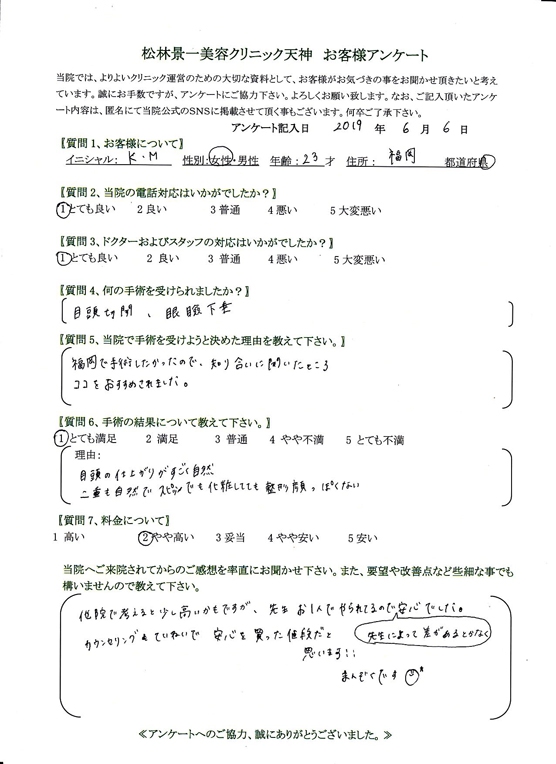 松林景一美容クリニック天神 お客様アンケート
当院では、よりよいクリニック運営のための大切な資料として、お客様がお気づきの事をお聞かせ頂きたいと考え
ています。誠にお手数ですが、アンケートにご協力下さい。よろしくお願い致します。なお、ご記入頂いたアンケ
ート内容は、匿名にて当院公式のSNSに掲載させて頂く事もございます。何卒ご了承下さい。
アンケート記入日 2019 年 6 月 6 日
〖質問1、お客様について〗
イニシャル: K・M 性別:女性・男性 年齢:23才 住所: 福岡 都道府県
〖質問2、当院の電話対応はいかがでしたか?〗
1とても良い 2良い 3普通 4悪い 5大変悪い
〖質問3、ドクターおよびスタッフの対応はいかがでしたか?〗
1とても良い 2 良い 3 普通 4悪い 5大変悪い
〖質問4、何の手術を受けられましたか?〗
目頭切開、眼瞼下垂
〖質問5、当院で手術を受けようと決めた理由を教えて下さい。〗
福岡で手術したかったので、知り合いに聞いたところ
ココをおすすめされました。
〖質問6、手術の結果について教えて下さい。〗
1とても満足 2 満足 3 普通 4 やや不満 5 とても不満
理由:
目頭の仕上がりがすごく自然
二重も自然でスッピンでも化粧してても整形顔っぽくない
〖質問7、料金について〗
1 高い 2やや高い 3 妥当 4やや安い 5安い
当院へご来院されてからのご感想を率直にお聞かせ下さい。また、要望や改善点など些細な事でも
構いませんので教えて下さい。
他院で考えると少し高いかもですが、先生お1人でやられてるので安心でした。
先生によって差があるとかなく
カウンセリングもていねいで 安心を買った値段だと
思います!!
まんぞくです
≪アンケートへのご協力、誠にありがとうございました。≫